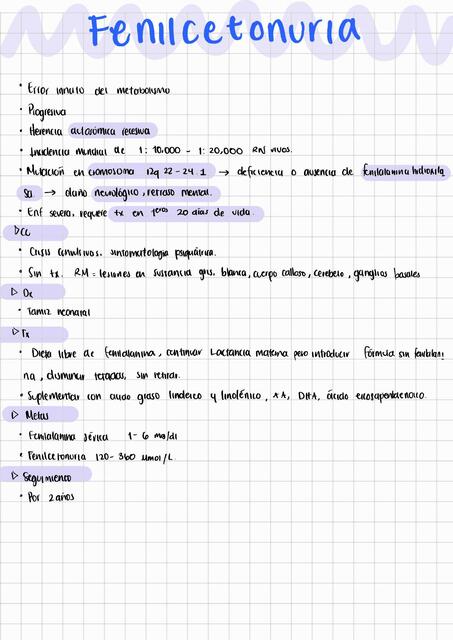 Fenilcetonuria
• Error innato del metabolismo
• Progresiva
• Herencia autosómica recesiva
• Incidencia mundial de 1: 10,000 - 1: 20,000 RN vivos.
• Mutación en cromosoma 12q 22-24.1 → deficiencia o ausencia de fenilalanina hidroxila
sa → daño neurológico, retraso mental.
• Enf severa, requiere tx en 1eros 20 días de vida.
▷ CC
• Crisis convulsivas. sintomatología psiquiátrica.
• Sin tx. RM = lesiones en sustancia gris, blanca, cuerpo calloso, cerebelo, ganglios basales
▷ Dx
• Tamiz neonatal
▷ Tx
• Dieta libre de fenilalanina, continuar Lactancia materna pero introducir fórmula sin
na, disminuir sin retirar.
• Suplementar con acido graso linoleico y linolénico, AA, DHA, ácido eicosapentaenoico.
▷ Metas
• Fenilalanina sérica 1-6 mg/dl
• Fenilcetonuria 120-360 µmol/L
▷ Seguimiento
• Por 2 años